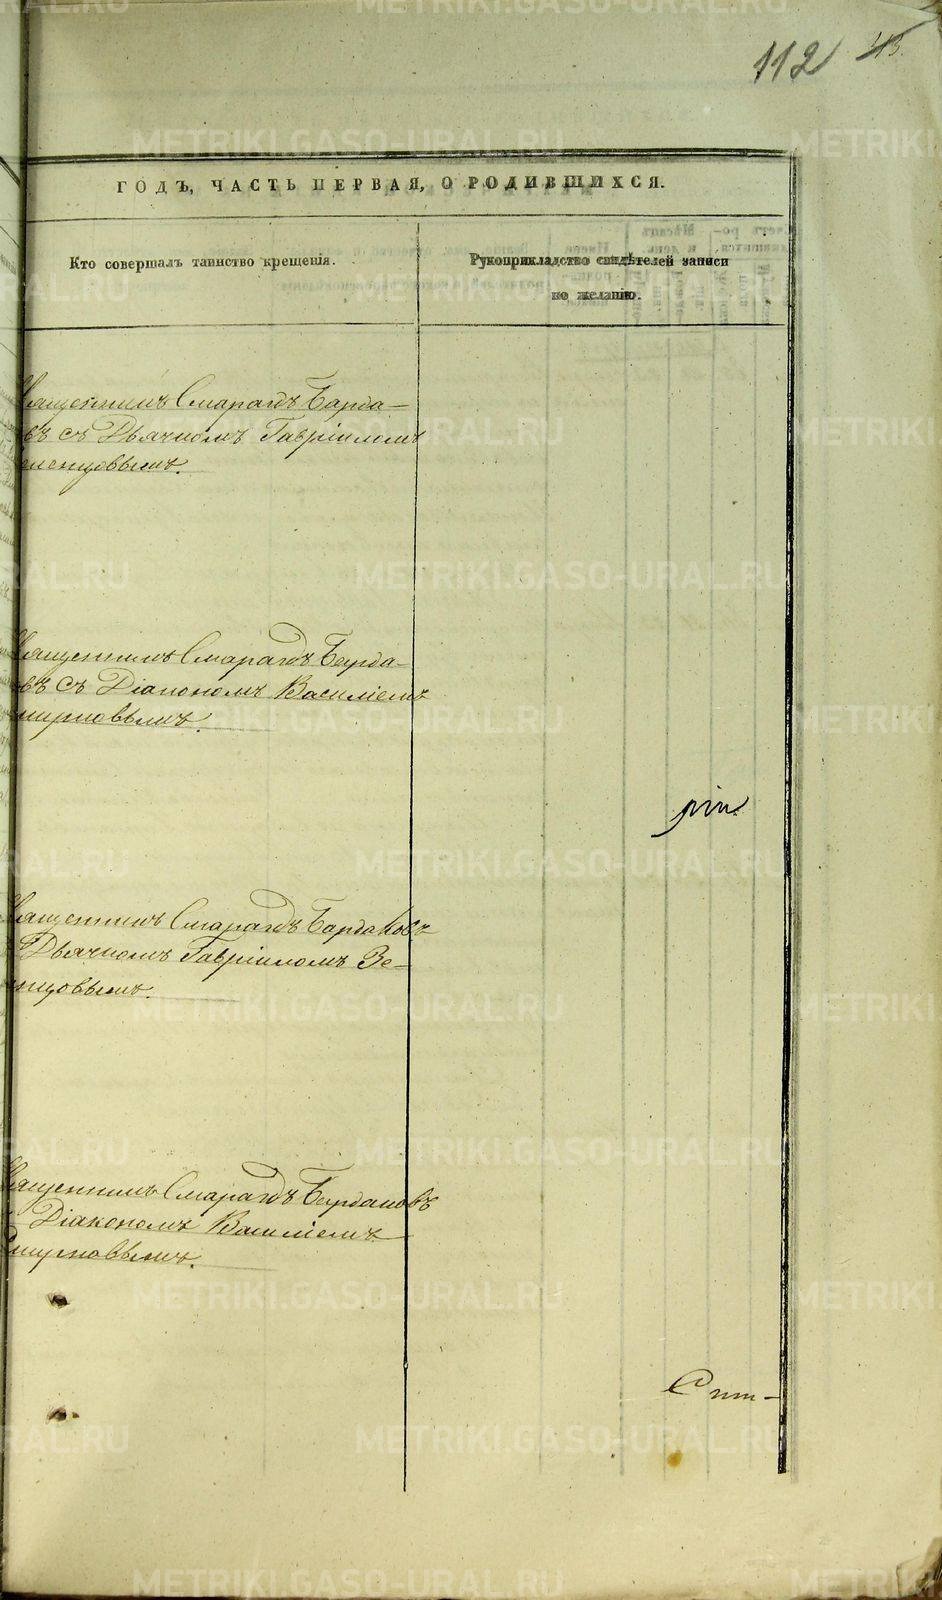 112 45.
ГОДЪ, ЧАСТЬ ПЕРВАЯ, О РОДИВШИХСЯ.
Кто совершалъ таинство крещенія.
Рукоприкладство свидѣтелей записи
по желанію.
Священникъ Смарагдъ Барда-
въ съ Дьячкомъ Гавріиломъ
менцовымъ.
Священникъ Смарагдъ Барда-
въ съ Діакономъ Василіемъ
мирновымъ.
ріи
Священникъ Смарагдъ Бардаковъ
Дьячкомъ Гавріиломъ Зе-
нцовымъ.
Священникъ Смарагдъ Бардаковъ
Діакономъ Василіемъ
Смирновымъ.
METRIKI.GASO-URAL.RU